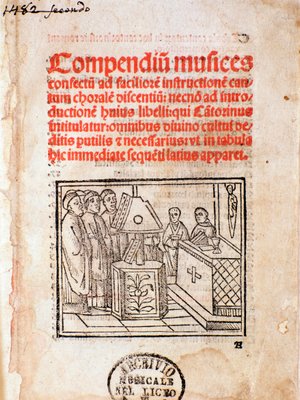 1482 secondo
Compendiū musices
confectū ad faciliorē instructionē can
tum choralē discentiū: necnō ad intro
ductionē huius libelli: qui Cātorinus
intitulatur: omnibus divino cultui de
ditis putilis & necessarius: vt in tabula
hic immediate sequēti latius apparet.
A
ARCHIVIO
MUSICALE
NEL LICEO